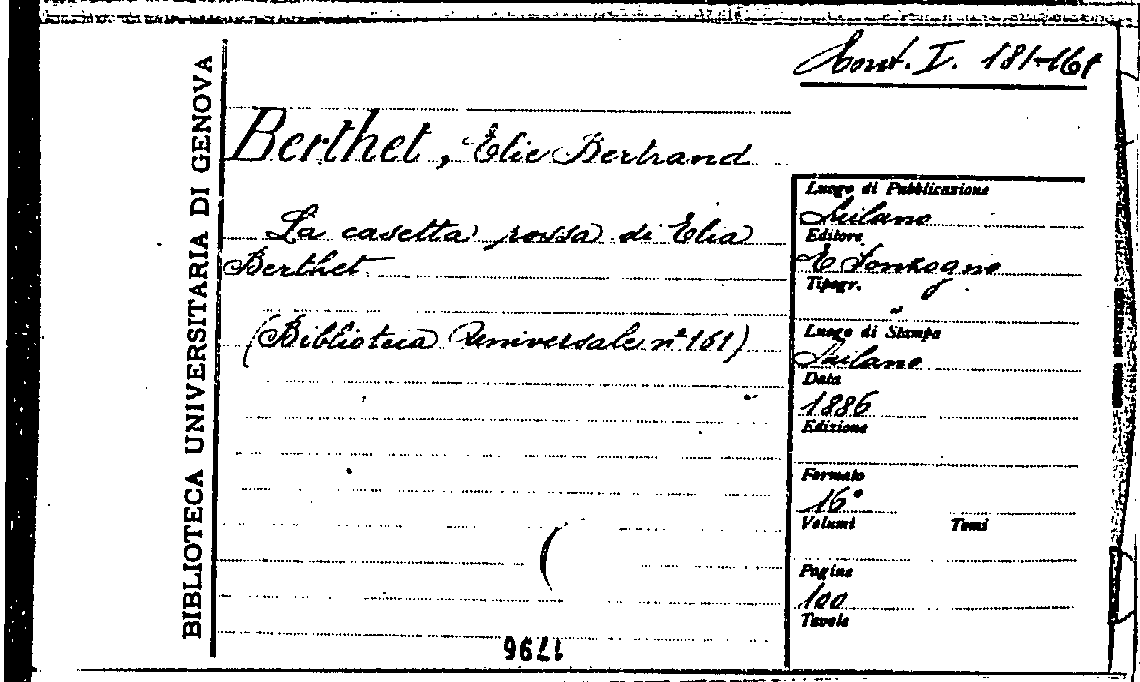 BIBLIOTECA UNIVERSITARIA DI GENOVA
Cont. I. 181-161
Berthet, Elie Bertrand
La casetta rossa di Elia
Berthet
(Biblioteca Universale nº 161)
Luogo di Pubblicazione
Milano
Editore
E Sonzogno
Tipogr.
Luogo di Stampa
Milano
Data
1886
Edizione
Formato
16°
Volumi Tomi
Pagine
100
Tavole
1796